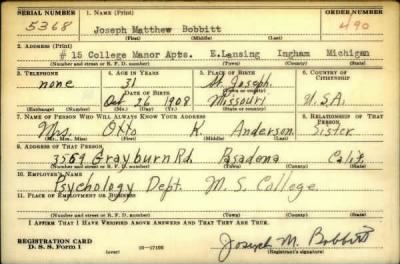 SERIAL NUMBER 1. NAME (Print) ORDER NUMBER
5368 Joseph Matthew Bobbitt 490
(First) (Middle) (Last)
2. ADDRESS (Print)
#15 College Manor Apts. E.Lansing Ingham Michigan
(Number and street or R. F. D. number) (Town) (County) (State)
3. TELEPHONE 4. AGE IN YEARS 5. PLACE OF BIRTH 6. COUNTRY OF CITIZENSHIP
none 31 St. Joseph,
DATE OF BIRTH (Town or county)
Oct 26 1908 Missouri U.S.A.
(Exchange) (Number) (Mo.) (Day) (Yr.) (State or country)
7. NAME OF PERSON WHO WILL ALWAYS KNOW YOUR ADDRESS 8. RELATIONSHIP OF THAT PERSON
Mrs. Otto K. Anderson Sister
(Mr., Mrs., Miss) (First) (Middle) (Last)
9. ADDRESS OF THAT PERSON
3569 Grayburn Rd. Pasadena Calif.
(Number and street or R. F. D. number) (Town) (County) (State)
10. EMPLOYER'S NAME
Psychology Dept. M. S. College
11. PLACE OF EMPLOYMENT OR BUSINESS
(Number and street or R. F. D. number) (Town) (County) (State)
I AFFIRM THAT I HAVE VERIFIED ABOVE ANSWERS AND THAT THEY ARE TRUE.
REGISTRATION CARD
D. S. S. Form 1 (over) 16—17105 Joseph M. Bobbitt
(Registrant's signature)